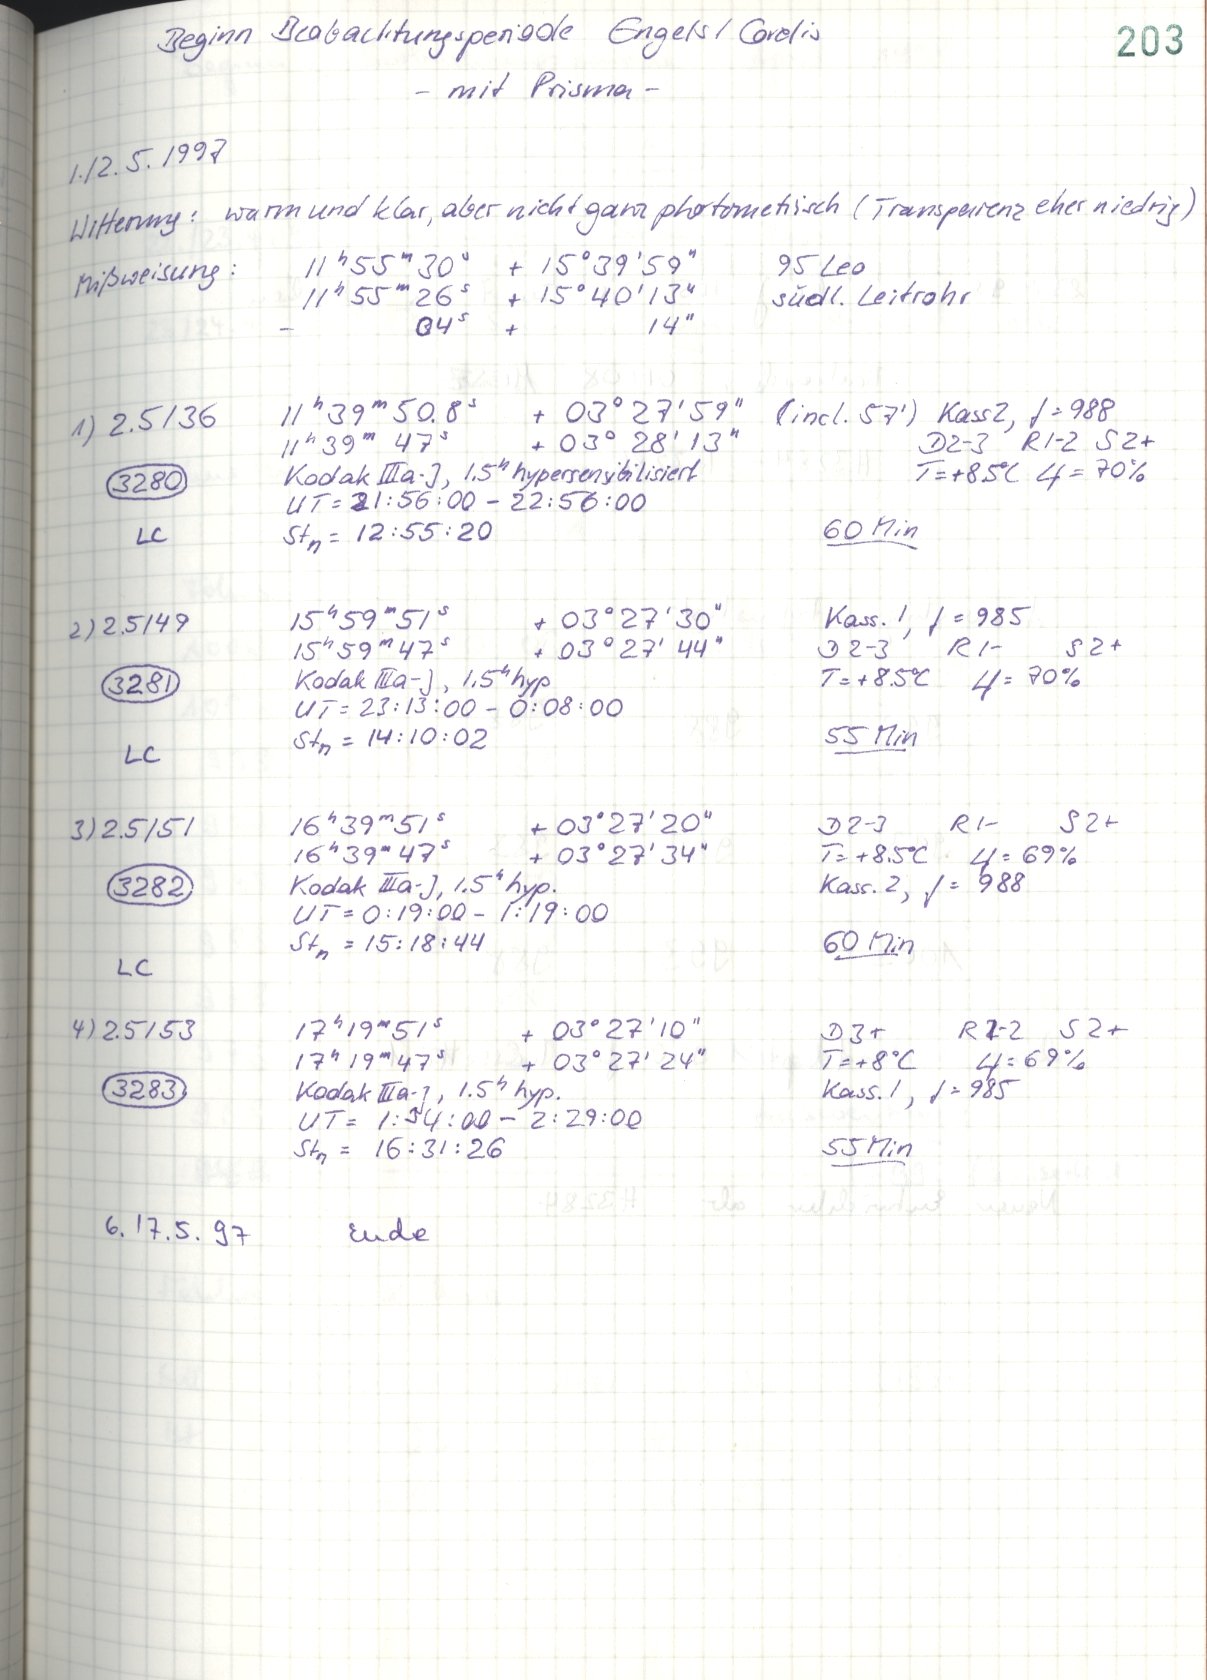 203
Beginn Beobachtungsperiode Engels / Cordis
- mit Prisma -
1./2.5.1997
Witterung: warm und klar, aber nicht ganz photometrisch (Transparenz eher niedrig)
Mißweisung: 11ʰ55ᵐ30ˢ + 15°39'59" 95 Leo
11ʰ55ᵐ26ˢ + 15°40'13" südl. Leitrohr
- 04ˢ + 14"
1) 2.5/36 11ʰ39ᵐ50.8ˢ + 03°27'59" (incl. 57') Kass 2, f = 988
11ʰ39ᵐ47ˢ + 03°28'13" D2-3 R1-2 S2+
3280 Kodak IIIa-J, 1.5ʰ hypersensibilisiert T=+8.5°C φ = 70%
UT = 21:56:00 - 22:56:00
LC Stₙ = 12:55:20 60 Min
2) 2.5/49 15ʰ59ᵐ51ˢ + 03°27'30" Kass. 1, f = 985
15ʰ59ᵐ47ˢ + 03°27'44" D2-3 R1- S2+
3281 Kodak IIIa-J, 1.5ʰ hyp T=+8.5°C φ = 70%
UT = 23:13:00 - 0:08:00
LC Stₙ = 14:10:02 55 Min
3) 2.5/51 16ʰ39ᵐ51ˢ + 03°27'20" D2-3 R1- S2+
16ʰ39ᵐ47ˢ + 03°27'34" T=+8.5°C φ = 69%
3282 Kodak IIIa-J, 1.5ʰ hyp. Kass. 2, f = 988
UT = 0:19:00 - 1:19:00
LC Stₙ = 15:18:44 60 Min
4) 2.5/53 17ʰ19ᵐ51ˢ + 03°27'10" D3+ R1-2 S2+
17ʰ19ᵐ47ˢ + 03°27'24" T=+8°C φ = 69%
3283 Kodak IIIa-J, 1.5ʰ hyp. Kass. 1, f = 985
UT = 1:34:00 - 2:29:00
Stₙ = 16:31:26 55 Min
6. 17.5.97 Ende